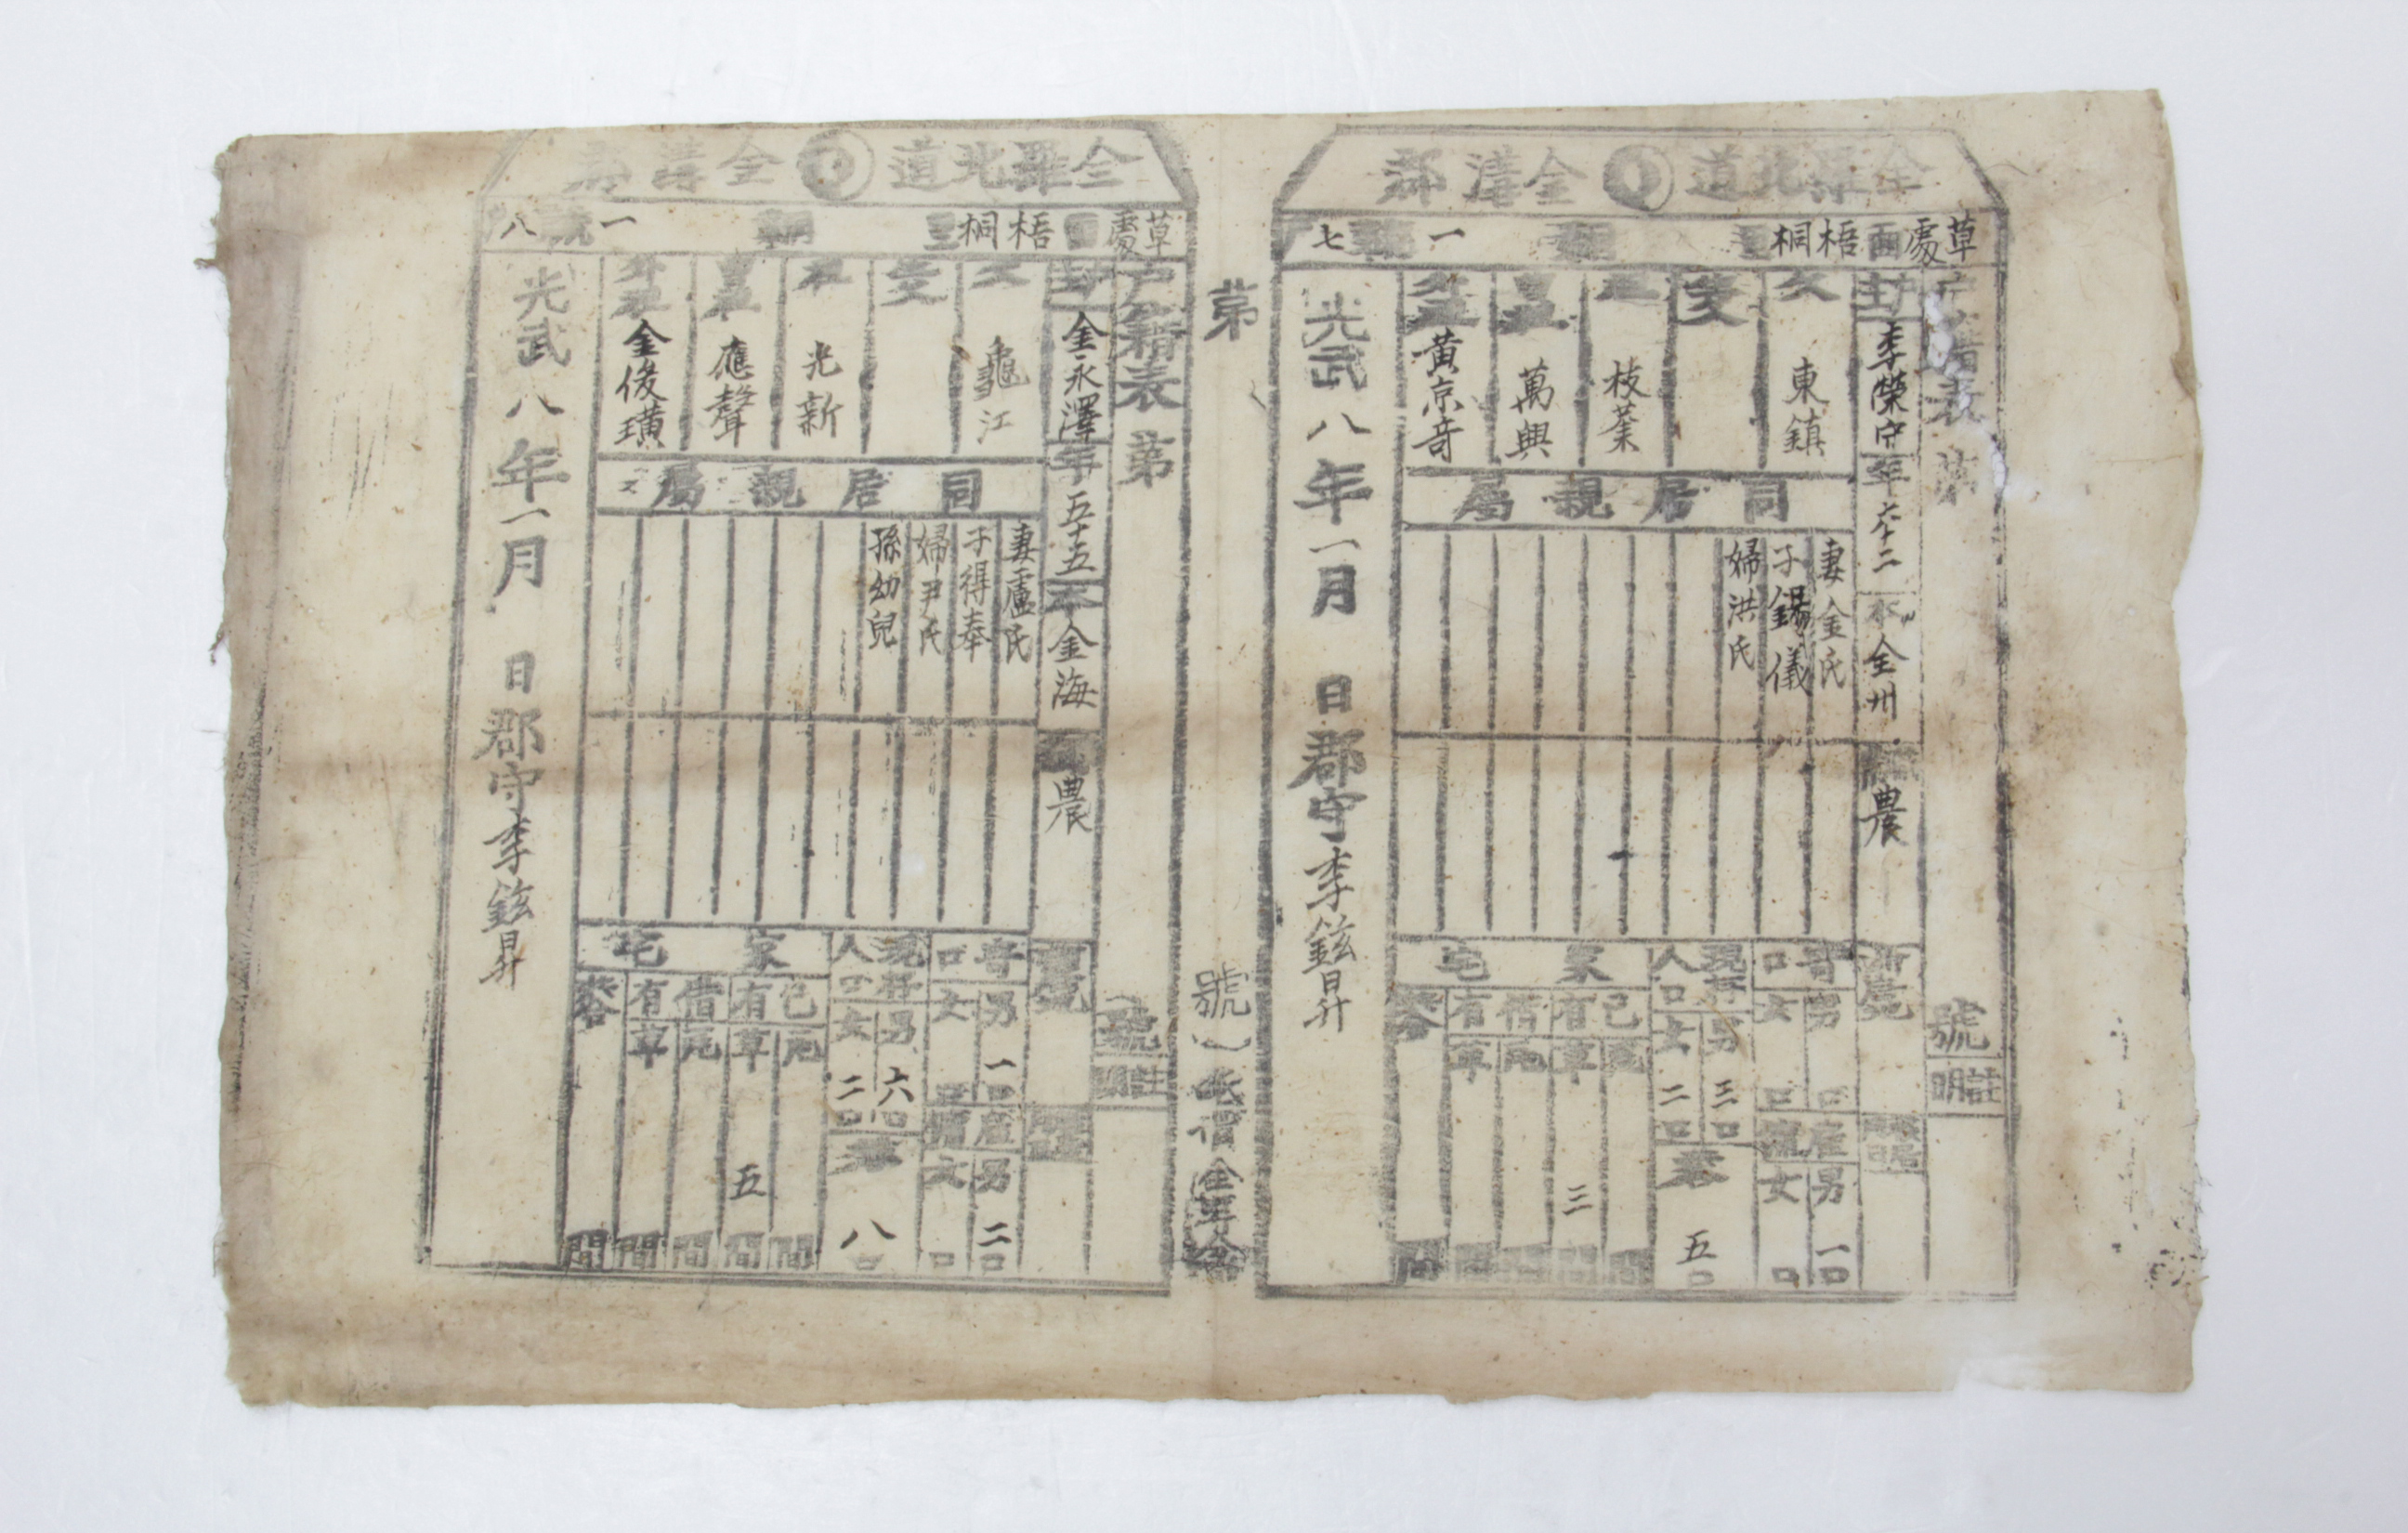 全羅北道 金溝郡
草處面 梧桐里 統 一 號 七
戶籍表 第 號
註明
戶主 李榮守 年 六十二 本 全州 職業 農
父 東鎭
生父
祖 枝蓁
曾祖 萬興
外祖 黃京奇
同居親屬
妻金氏
子錫儀
婦洪氏
寄口 男 口 女 口
雇傭 男 一口 女 口
現存人口 男 三口 女 二口
共 五口
家宅
己有 瓦 間 草 三間
借有 瓦 間 草 間
共合 間
光武八年一月 日 郡守李鉉昇
第 號
全羅北道 金溝郡
草處面 梧桐里 統 一 號 八
戶籍表 第 號
註明
戶主 金永澤 年 五十五 本 金海 職業 農
父 龜江
生父
祖 光新
曾祖 應聲
外祖 金俊璜
同居親屬
妻盧氏
子得奉
婦尹氏
孫幼兒
寄口 男 一口 女 口
雇傭 男 二口 女 口
現存人口 男 六口 女 二口
共 八口
家宅
己有 瓦 間 草 五間
借有 瓦 間 草 間
共合 間
光武八年一月 日 郡守李鉉昇